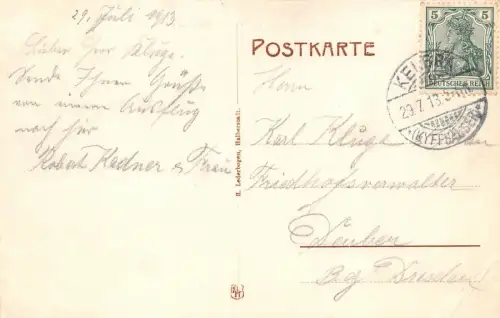 29. Juli 1913
Lieber Herr Kluge.
Sende Ihnen Grüße
von einem Ausflug
nach hier
Robert Kadner & Frau
H. Lederbogen, Halberstadt.
POSTKARTE
5 5
DEUTSCHES REICH
KELBRA
29.7.13.
(KYFFHÄUSER)
Herrn
Karl Kluge
Friedhofsverwalter
Deuben
Bez Dresden